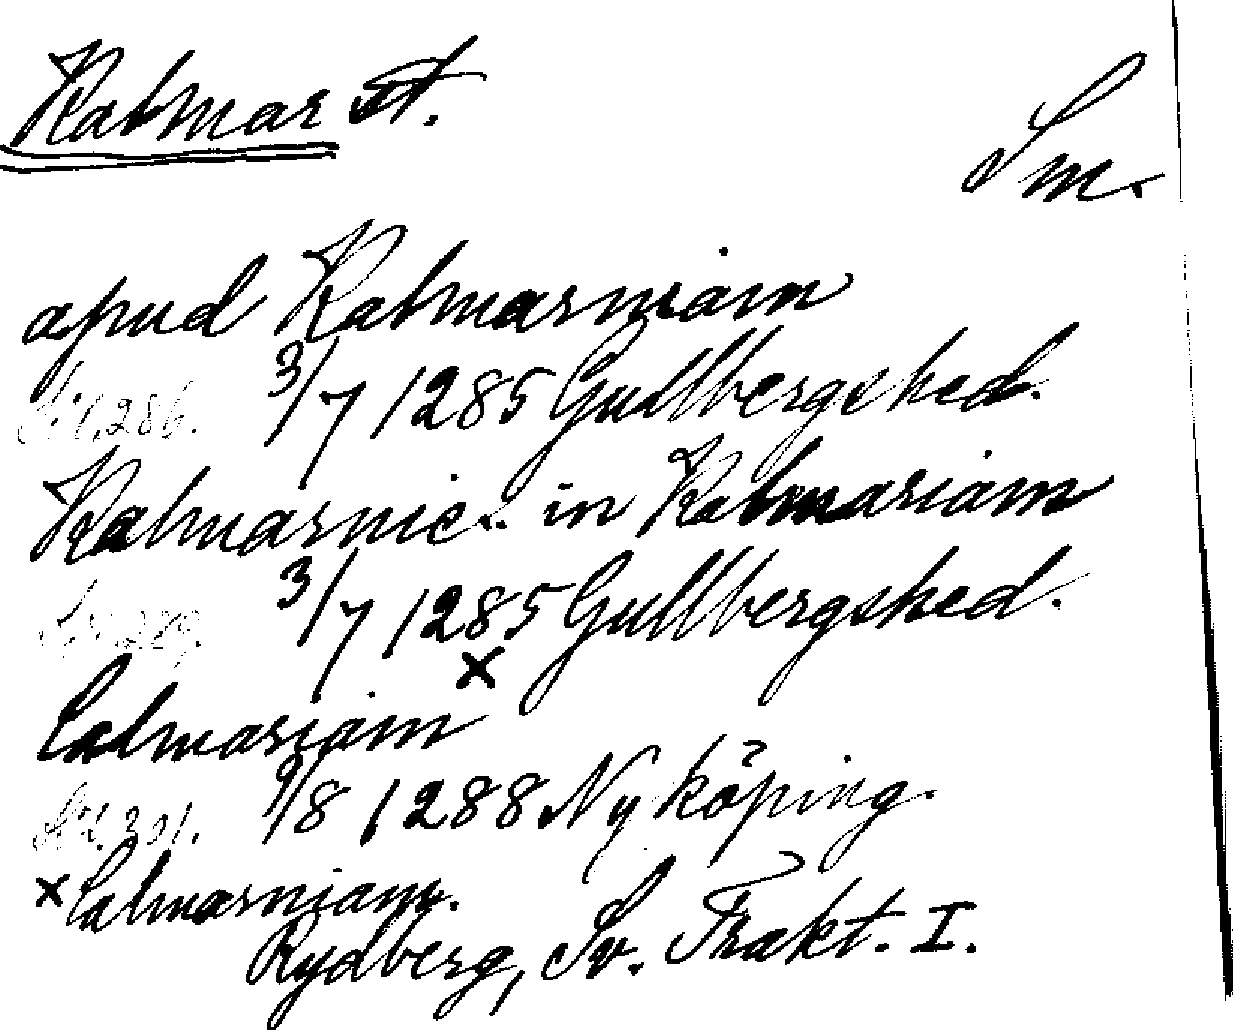 Kalmar st.
Sm.
apud Kalmarniam
3/7 1285 Gullbergshed.
Kalmarnie.. in Kalmariam
3/7 1285 Gullbergshed.
x
Calmariam
301. 9/8 1288 Nyköping.
x Calmarniam.
Rydberg, Sv. Trakt. I.